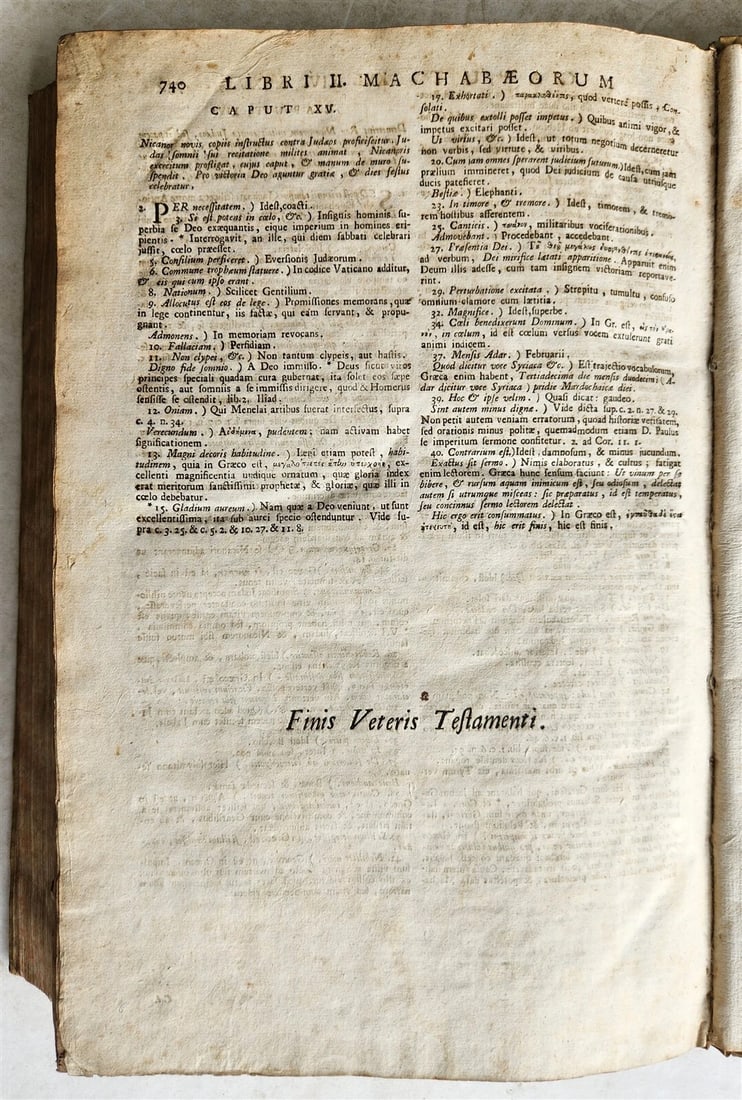 740 LIBRI II. MACHABÆORUM
CAPUT XV.
Nicanor novis copiis instructus contra Judæos proficiscitur. Ju-
das somnii sui recitatione milites animat, Nicanoris
exercitum profligat, ejus caput, & manum de muro su-
spendit. Pro victoria Deo aguntur gratiæ, & dies festus
celebratur.
2. PER necessitatem. ) Idest, coacti.
3. Si est potens in cœlo, &c. ) Insignis hominis su-
perbia se Deo exæquantis, eique imperium in homines eri-
pientis. * Interrogavit, an ille, qui diem sabbati celebrari
jussit, cœlo præesset.
5. Consilium perficere. ) Eversionis Judæorum.
6. Commune trophæum statuere. ) In codice Vaticano additur,
& eis qui cum ipso erant.
8. Nationum. ) Scilicet Gentilium.
9. Allocutus est eos de lege. ) Promissiones memorans, quæ
in lege continentur, iis factæ, qui eam servant, & propu-
gnant.
Admonens. ) In memoriam revocans.
10. Fallaciam. ) Perfidiam.
11. Non clypei, &c. ) Non tantum clypeis, aut hastis.
Digno fide somnio. ) A Deo immisso. * Deus sicut viros
principes speciali quadam cura gubernat, ita solet eos sæpe
ostentis, aut somniis a se immissis dirigere, quod & Homerus
sensisse se ostendit, lib. 2. Iliad.
12. Oniam. ) Qui Menelai artibus fuerat interfectus, supra
c. 4. n. 34.
Verecundum. ) pudentem; nam activam habet
significationem.
13. Magni decoris habitudine. ) Legi etiam potest, habi-
tudinem, quia in Græco est, ex-
cellenti magnificentia undique ornatum, quæ gloria index
erat meritorum sanctissimi prophetæ, & gloriæ, quæ illi in
cœlo debebatur.
* 15. Gladium aureum. ) Nam quæ a Deo veniunt, ut sunt
excellentissima, ita sub auri specie ostenduntur. Vide su-
pra c. 3. 25. & c. 5. 2. & 10. 27. & 11. 8.
17. Exhortati. ) quod vertere possis, Con-
solati.
De quibus extolli posset impetus. ) Quibus animi vigor, &
impetus excitari posset.
Ut virtus, &c. ) Idest, ut totum negotium decerneretur
non verbis, sed virtute, & viribus.
20. Cum jam omnes sperarent judicium futurum. ) Idest, cum jam
prælium immineret, quod Dei judicium de causa utriusque
ducis patefieret.
Bestiæ. ) Elephanti.
23. In timore, & tremore. ) Idest, timorem, & tremo-
rem hostibus afferentem.
25. Canticis. ) militaribus vociferationibus.
Admovebant. ) Procedebant, accedebant.
27. Præsentia Dei. )
ad verbum, Dei mirifice lætati apparitione. Apparuit enim
Deum illis adesse, cum tam insignem victoriam reportave-
rint.
29. Perturbatione excitata. ) Strepitu, tumultu, confuso
omnium clamore cum lætitia.
32. Magnifice. ) Idest, superbe.
34. Cœli benedixerunt Dominum. ) In Gr. est,
in cœlum, id est cœlum versus vocem extulerunt grati
animi indicem.
37. Mensis Adar. ) Februarii.
Quod dicitur voce Syriaca &c. ) Est trajectio vocabulorum,
Græca enim habent, Tertiadecima die mensis duodecimi ( A-
dar dicitur voce Syriaca ) pridie Mardochaica diei.
39. Hoc & ipse velim. ) Quasi dicat: gaudeo.
Sint autem minus digne. ) Vide dicta sup. c. 2. n. 27. & 29.
Non petit autem veniam erratorum, quoad historiæ veritatem,
sed orationis minus politæ, quemadmodum etiam D. Paulus
se imperitum sermone confitetur. 2. ad Cor. 11. 1.
40. Contrarium est. ) Idest, damnosum, & minus jucundum.
Exactus sit sermo. ) Nimis elaboratus, & cultus; fatigat
enim lectorem. Græca hunc sensum faciunt: Ut vinum per se
bibere, & rursum aquam inimicum est, seu odiosum, delectat
autem si utrumque misceas: sic præparatus, id est temperatus,
seu concinnus sermo lectorem delectat.
Hic ergo erit consummatus. ) In Græco est,
id est, hic erit finis, hic est finis.
Finis Veteris Testamenti.